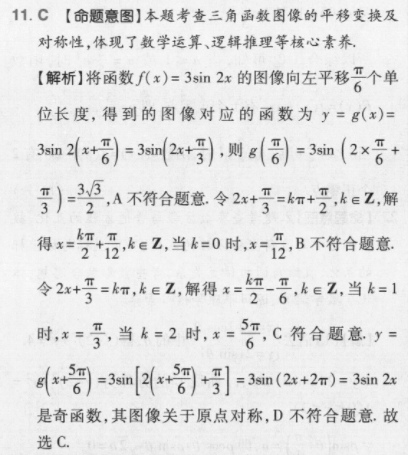 11. C 【命题意图】本题考查三角函数图像的平移变换及
对称性,体现了数学运算、逻辑推理等核心素养.
【解析】将函数 f(x)=3sin 2x 的图像向左平移π/6个单
位长度,得到的图像对应的函数为 y=g(x)=
3sin 2(x+π/6)=3sin(2x+π/3),则 g(π/6)=3sin(2×π/6+
π/3)=3√3/2,A 不符合题意. 令 2x+π/3=kπ+π/2,k∈Z,解
得 x=kπ/2+π/12,k∈Z,当 k=0 时,x=π/12,B 不符合题意.
令 2x+π/3=kπ,k∈Z,解得 x=kπ/2-π/6,k∈Z,当 k=1
时,x=π/3,当 k=2 时,x=5π/6,C 符合题意. y=
g(x+5π/6)=3sin[2(x+5π/6)+π/3]=3sin(2x+2π)=3sin 2x
是奇函数,其图像关于原点对称,D 不符合题意. 故
选 C.